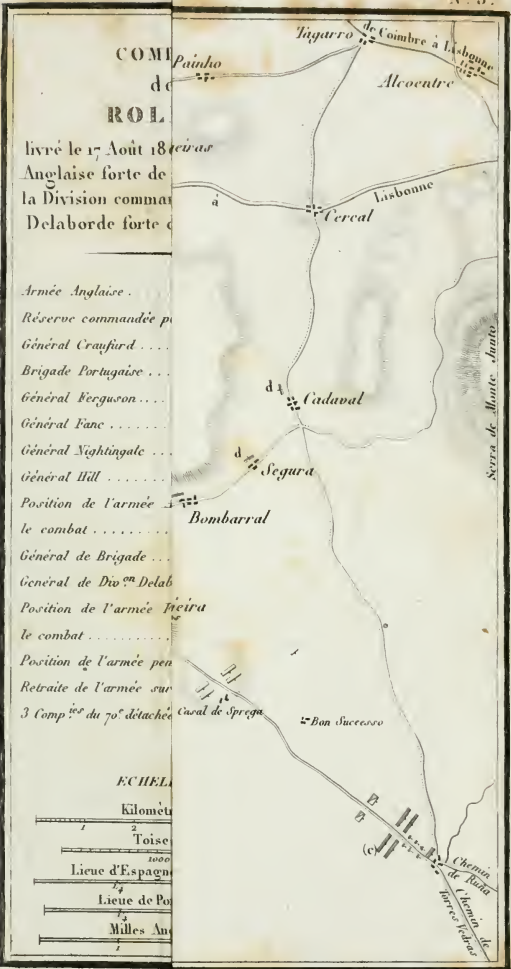 N.º 3.
COMB
de
ROL
livré le 17 Août 18
Anglaise forte de
la Division comman
Delaborde forte d
Armée Anglaise .
Réserve commandée p
Général Craufurd ....
Brigade Portugaise ...
Général Ferguson....
Général Fanc ......
Général Nightingale ...
Général Hill ........
Position de l'armée
le combat .........
Général de Brigade ...
General de Div.on Delab
Position de l'armée
le combat ..........
Position de l'armée pen
Retraite de l'armée sur
3 Comp.ies du 70e détachée
ECHEL
Kilomèt
1 2
Toise
1000
Lieue d'Espagn
1/4
Lieue de Po
1/4
Milles An
1
Tagarro
de Coimbre à Lisbonne
Painho
Alcoentre
eiras
à
Lisbonne
Cercal
Serra de Monte Junto
d
Cadaval
d
Segura
Bombarral
Vieira
Casal de Sprega
Bon Successo
(c)
Chemin
de Ruña
Chemin de
Torres Vedras